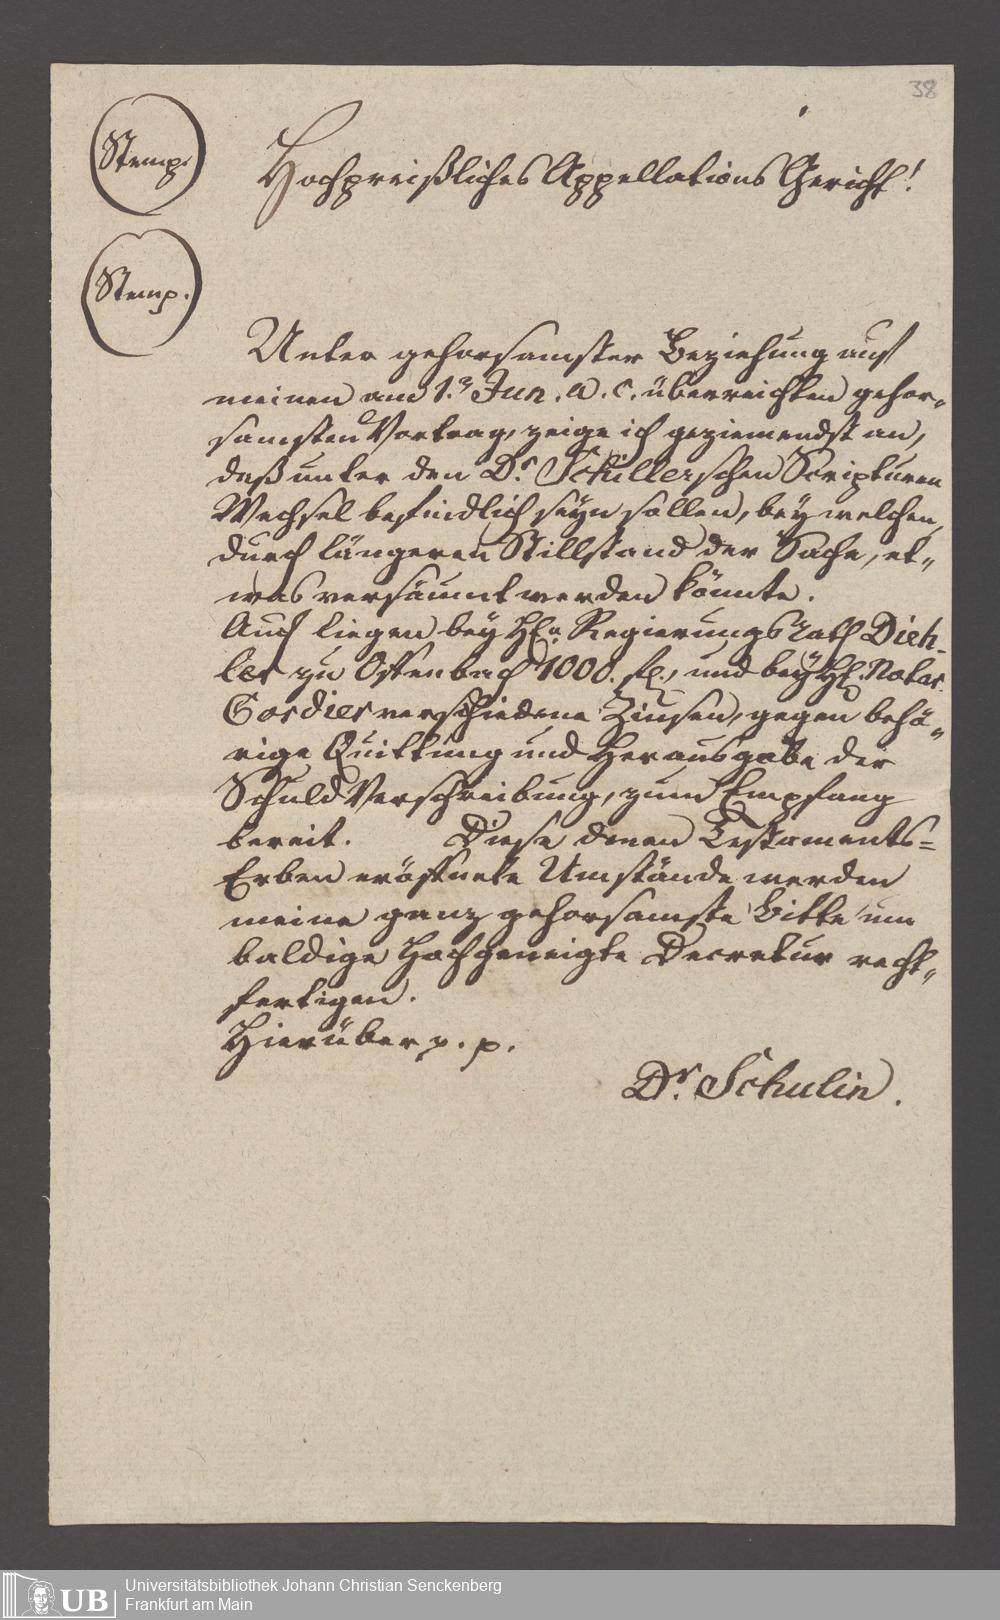 38
Stemp.
Hochpreißliches Appellations Gericht!
Stemp.
Unter gehorsamster Beziehung auf
meinen am 1.ⁿ Jun. a. c. überreichten gehor„
samsten Vortrag, zeige ich geziemendst an,
daß unter den Dr. Schüllerschen Scripturen
Wechsel befindlich seyn sollen, bey welchen,
durch längeren Stillstand der Sache, et„
was versäumt werden könnte.
Auch liegen bey H. Regierungs Rath Dieh-
ler zu Offenbach 1000. fl., und bey H. Notar.
Cordier verschiedene Zinsen, gegen behö„
rige Quittung und Herausgabe der
Schuld Verschreibung, zum Empfang
bereit. Diese denen Testaments=
Erben eröffnete Umstände werden
meine ganz gehorsamste Bitte um
baldige Hochgeneigte Decretur recht„
fertigen.
Hierüber p. p.
Dr. Schulin.
UB
Universitätsbibliothek Johann Christian Senckenberg
Frankfurt am Main